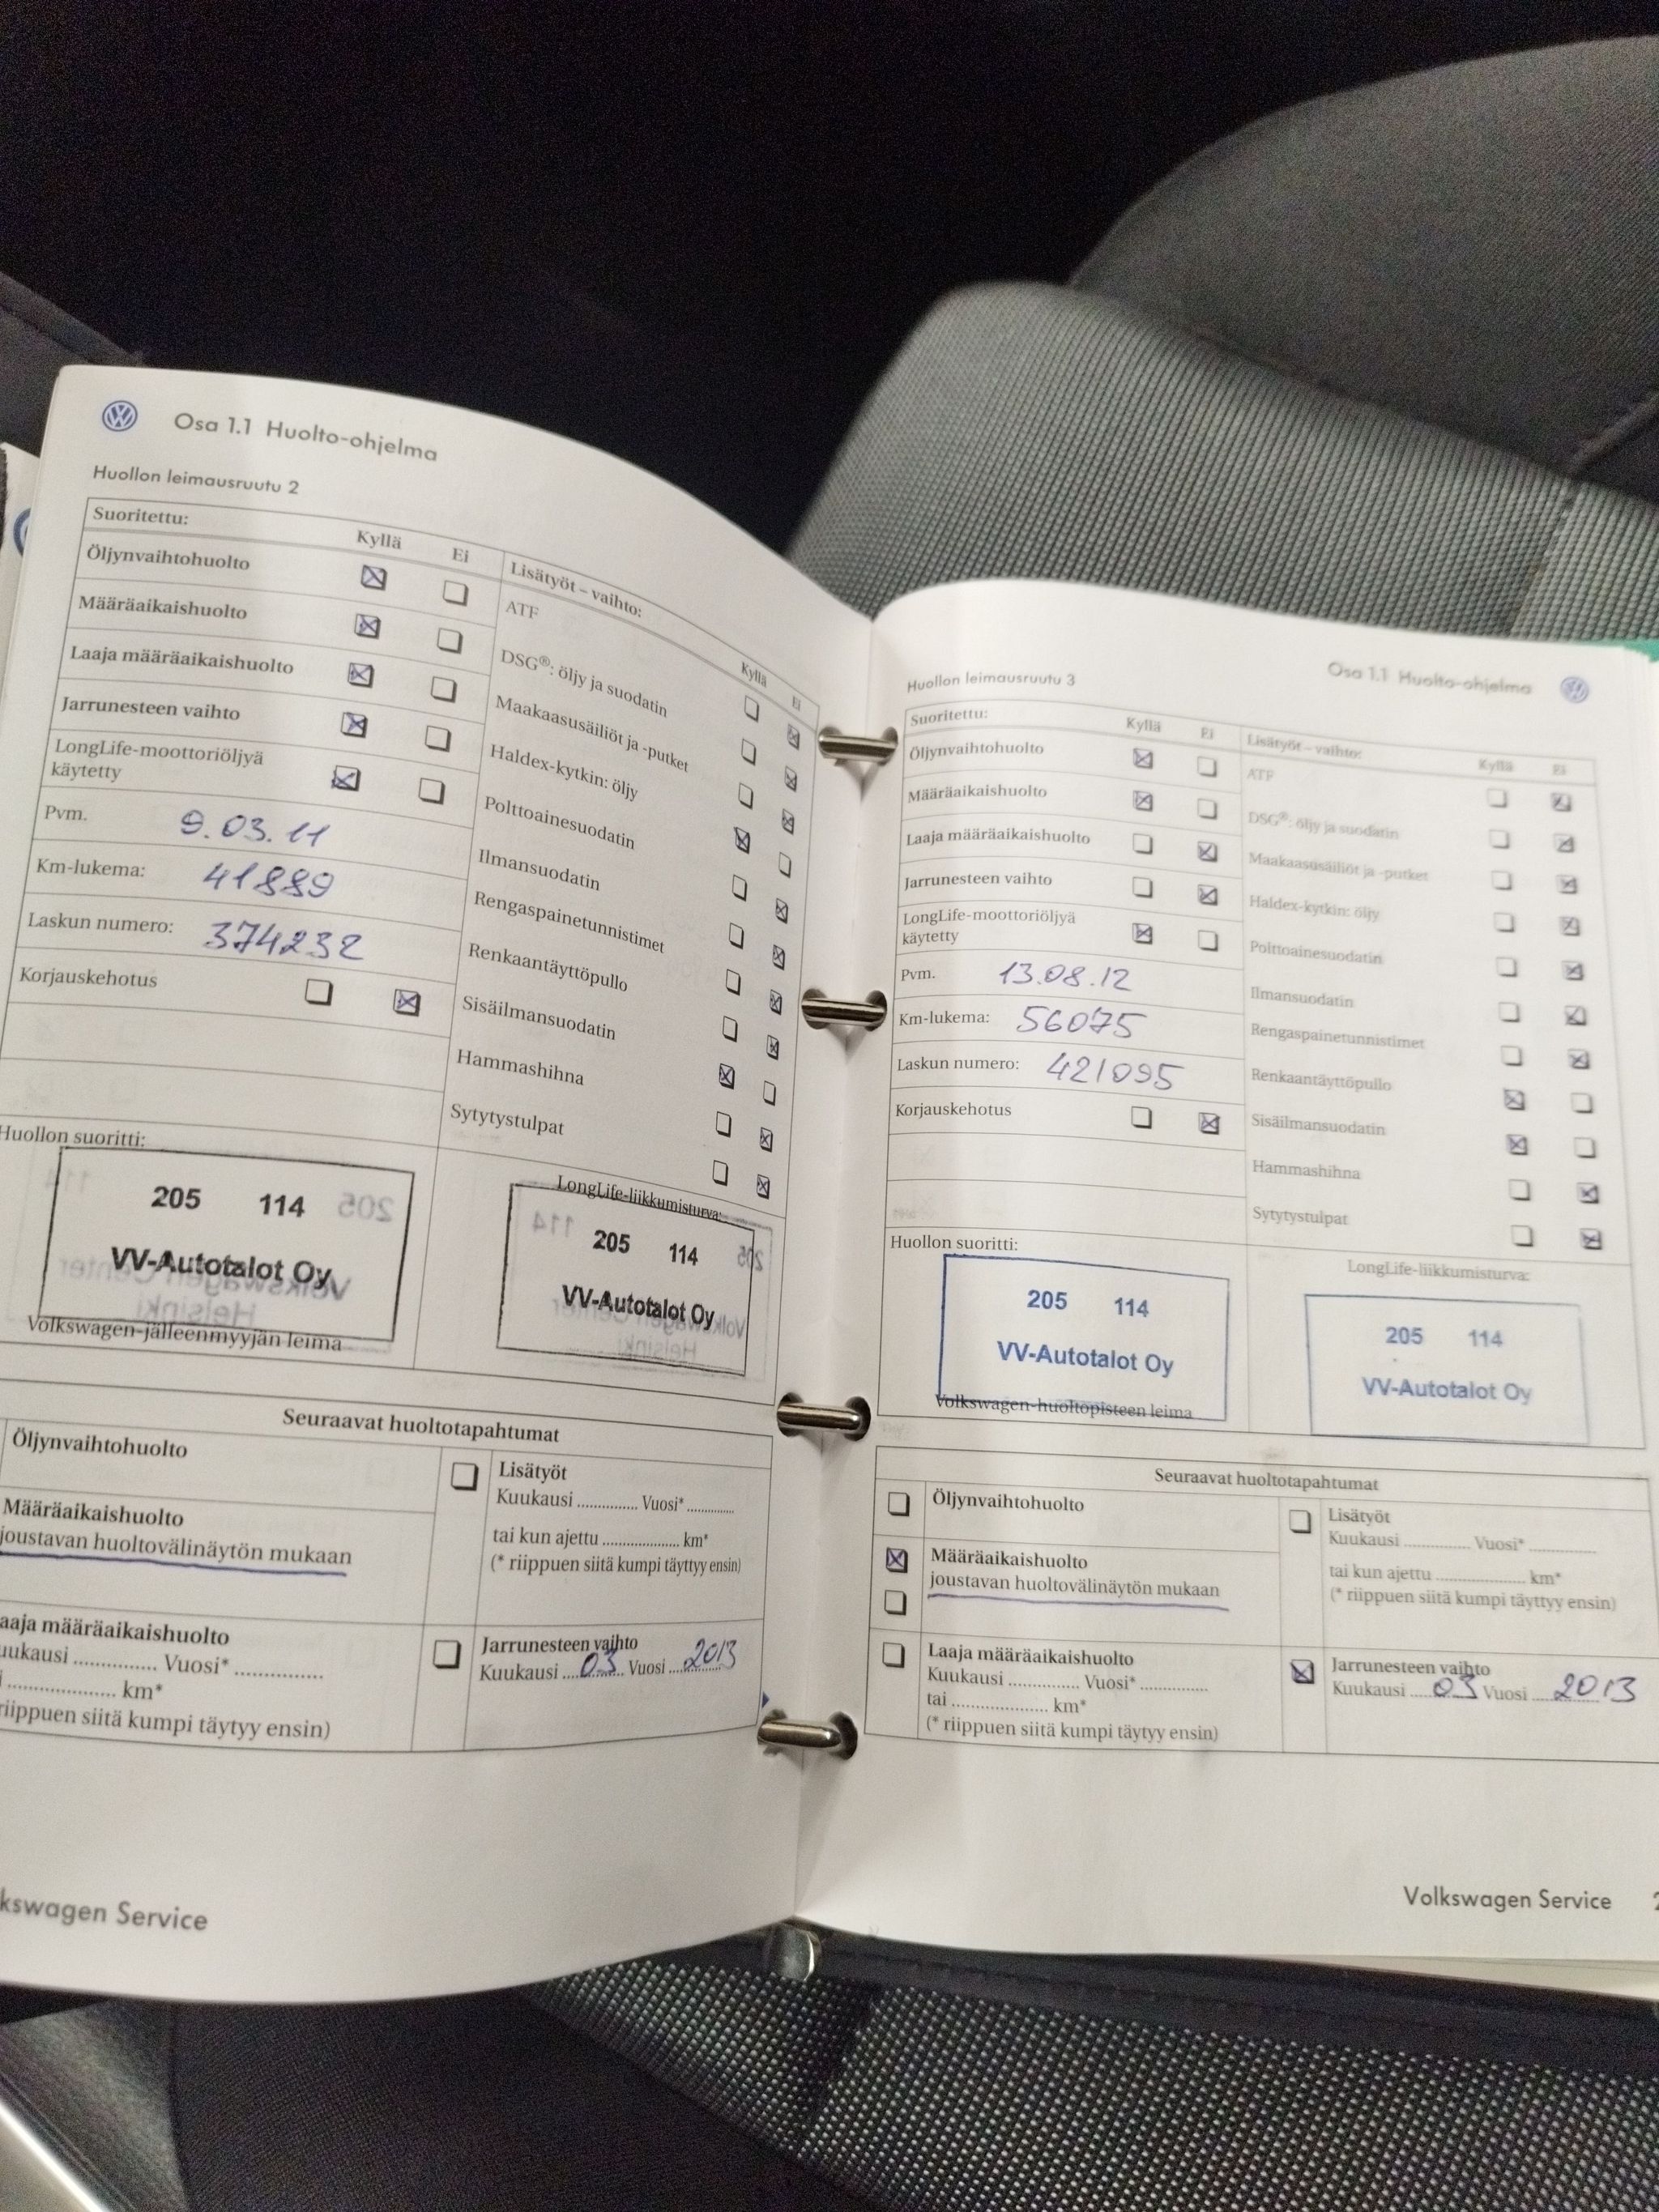 Osa 1.1 Huolto-ohjelma
Huollon leimausruutu 2
Suoritettu:
Kyllä Ei
Öljynvaihtohuolto
Määräaikaishuolto
Laaja määräaikaishuolto
Jarrunesteen vaihto
LongLife-moottoriöljyä
käytetty
Pvm. 9.03.11
Km-lukema: 41889
Laskun numero: 374232
Korjauskehotus
Lisätyöt – vaihto:
Kyllä Ei
ATF
DSG®: öljy ja suodatin
Maakaasusäiliöt ja -putket
Haldex-kytkin: öljy
Polttoainesuodatin
Ilmansuodatin
Rengaspainetunnistimet
Renkaantäyttöpullo
Sisäilmansuodatin
Hammashihna
Sytytystulpat
Huollon suoritti:
205 114
VV-Autotalot Oy
Volkswagen-jälleenmyyjän leima
LongLife-liikkumisturva:
205 114
VV-Autotalot Oy
Seuraavat huoltotapahtumat
Öljynvaihtohuolto
Määräaikaishuolto
joustavan huoltovälinäytön mukaan
Lisätyöt
Kuukausi .............. Vuosi* ..............
tai kun ajettu .................... km*
(* riippuen siitä kumpi täyttyy ensin)
aaja määräaikaishuolto
uukausi .............. Vuosi* ...............
i .................... km*
riippuen siitä kumpi täytyy ensin)
Jarrunesteen vaihto
Kuukausi 03 Vuosi 2013
kswagen Service
Osa 1.1 Huolto-ohjelma
Huollon leimausruutu 3
Suoritettu:
Kyllä Ei
Öljynvaihtohuolto
Määräaikaishuolto
Laaja määräaikaishuolto
Jarrunesteen vaihto
LongLife-moottoriöljyä
käytetty
Pvm. 13.08.12
Km-lukema: 56075
Laskun numero: 421095
Korjauskehotus
Lisätyöt – vaihto:
Kyllä Ei
ATF
DSG®: öljy ja suodatin
Maakaasusäiliöt ja -putket
Haldex-kytkin: öljy
Polttoainesuodatin
Ilmansuodatin
Rengaspainetunnistimet
Renkaantäyttöpullo
Sisäilmansuodatin
Hammashihna
Sytytystulpat
Huollon suoritti:
205 114
VV-Autotalot Oy
Volkswagen-huoltopisteen leima
LongLife-liikkumisturva:
205 114
VV-Autotalot Oy
Seuraavat huoltotapahtumat
Öljynvaihtohuolto
Määräaikaishuolto
joustavan huoltovälinäytön mukaan
Lisätyöt
Kuukausi .............. Vuosi* ..............
tai kun ajettu .................... km*
(* riippuen siitä kumpi täyttyy ensin)
Laaja määräaikaishuolto
Kuukausi .............. Vuosi* ..............
tai .................... km*
(* riippuen siitä kumpi täytyy ensin)
Jarrunesteen vaihto
Kuukausi 03 Vuosi 2013
Volkswagen Service